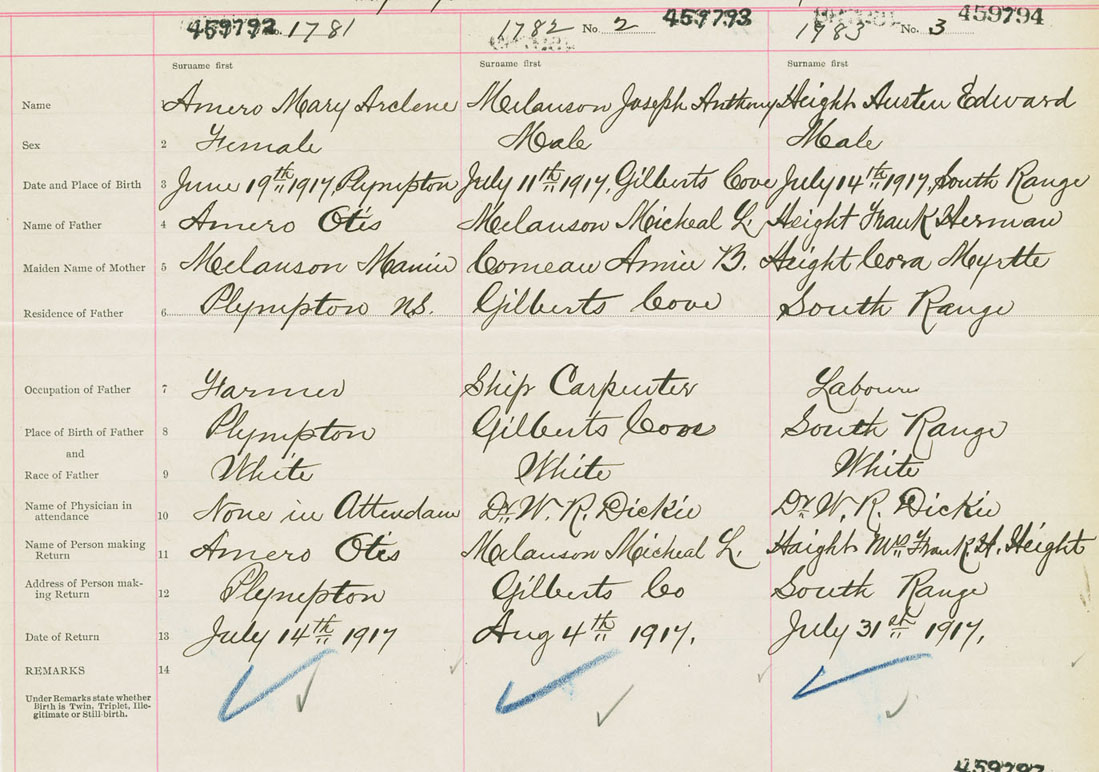 459792 1781 1782 No. 2 459793 1783 No. 3 459794
Surname first Surname first Surname first
Name 1 Amero Mary Arclene Melanson Joseph Anthony Height Austen Edward
Sex 2 Female Male Male
Date and Place of Birth 3 June 19th 1917, Plympton July 11th 1917, Gilberts Cove July 14th 1917, South Range
Name of Father 4 Amero Otis Melanson Micheal L. Height Frank Herman
Maiden Name of Mother 5 Melanson Mamie Comeau Annie B. Height Cora Myrtle
Residence of Father 6 Plympton N.S. Gilberts Cove South Range
Occupation of Father 7 Farmer Ship Carpenter Labourer
Place of Birth of Father 8 Plympton Gilberts Cove South Range
and
Race of Father 9 White White White
Name of Physician in
attendance 10 None in Attendance Dr. W. R. Dickie Dr. W. R. Dickie
Name of Person making
Return 11 Amero Otis Melanson Micheal L. Haight Mrs Frank H. Height
Address of Person mak-
ing Return 12 Plympton Gilberts Co South Range
Date of Return 13 July 14th 1917 Aug 4th 1917. July 31st 1917.
REMARKS 14
Under Remarks state whether
Birth is Twin, Triplet, Ille-
gitimate or Still-birth.